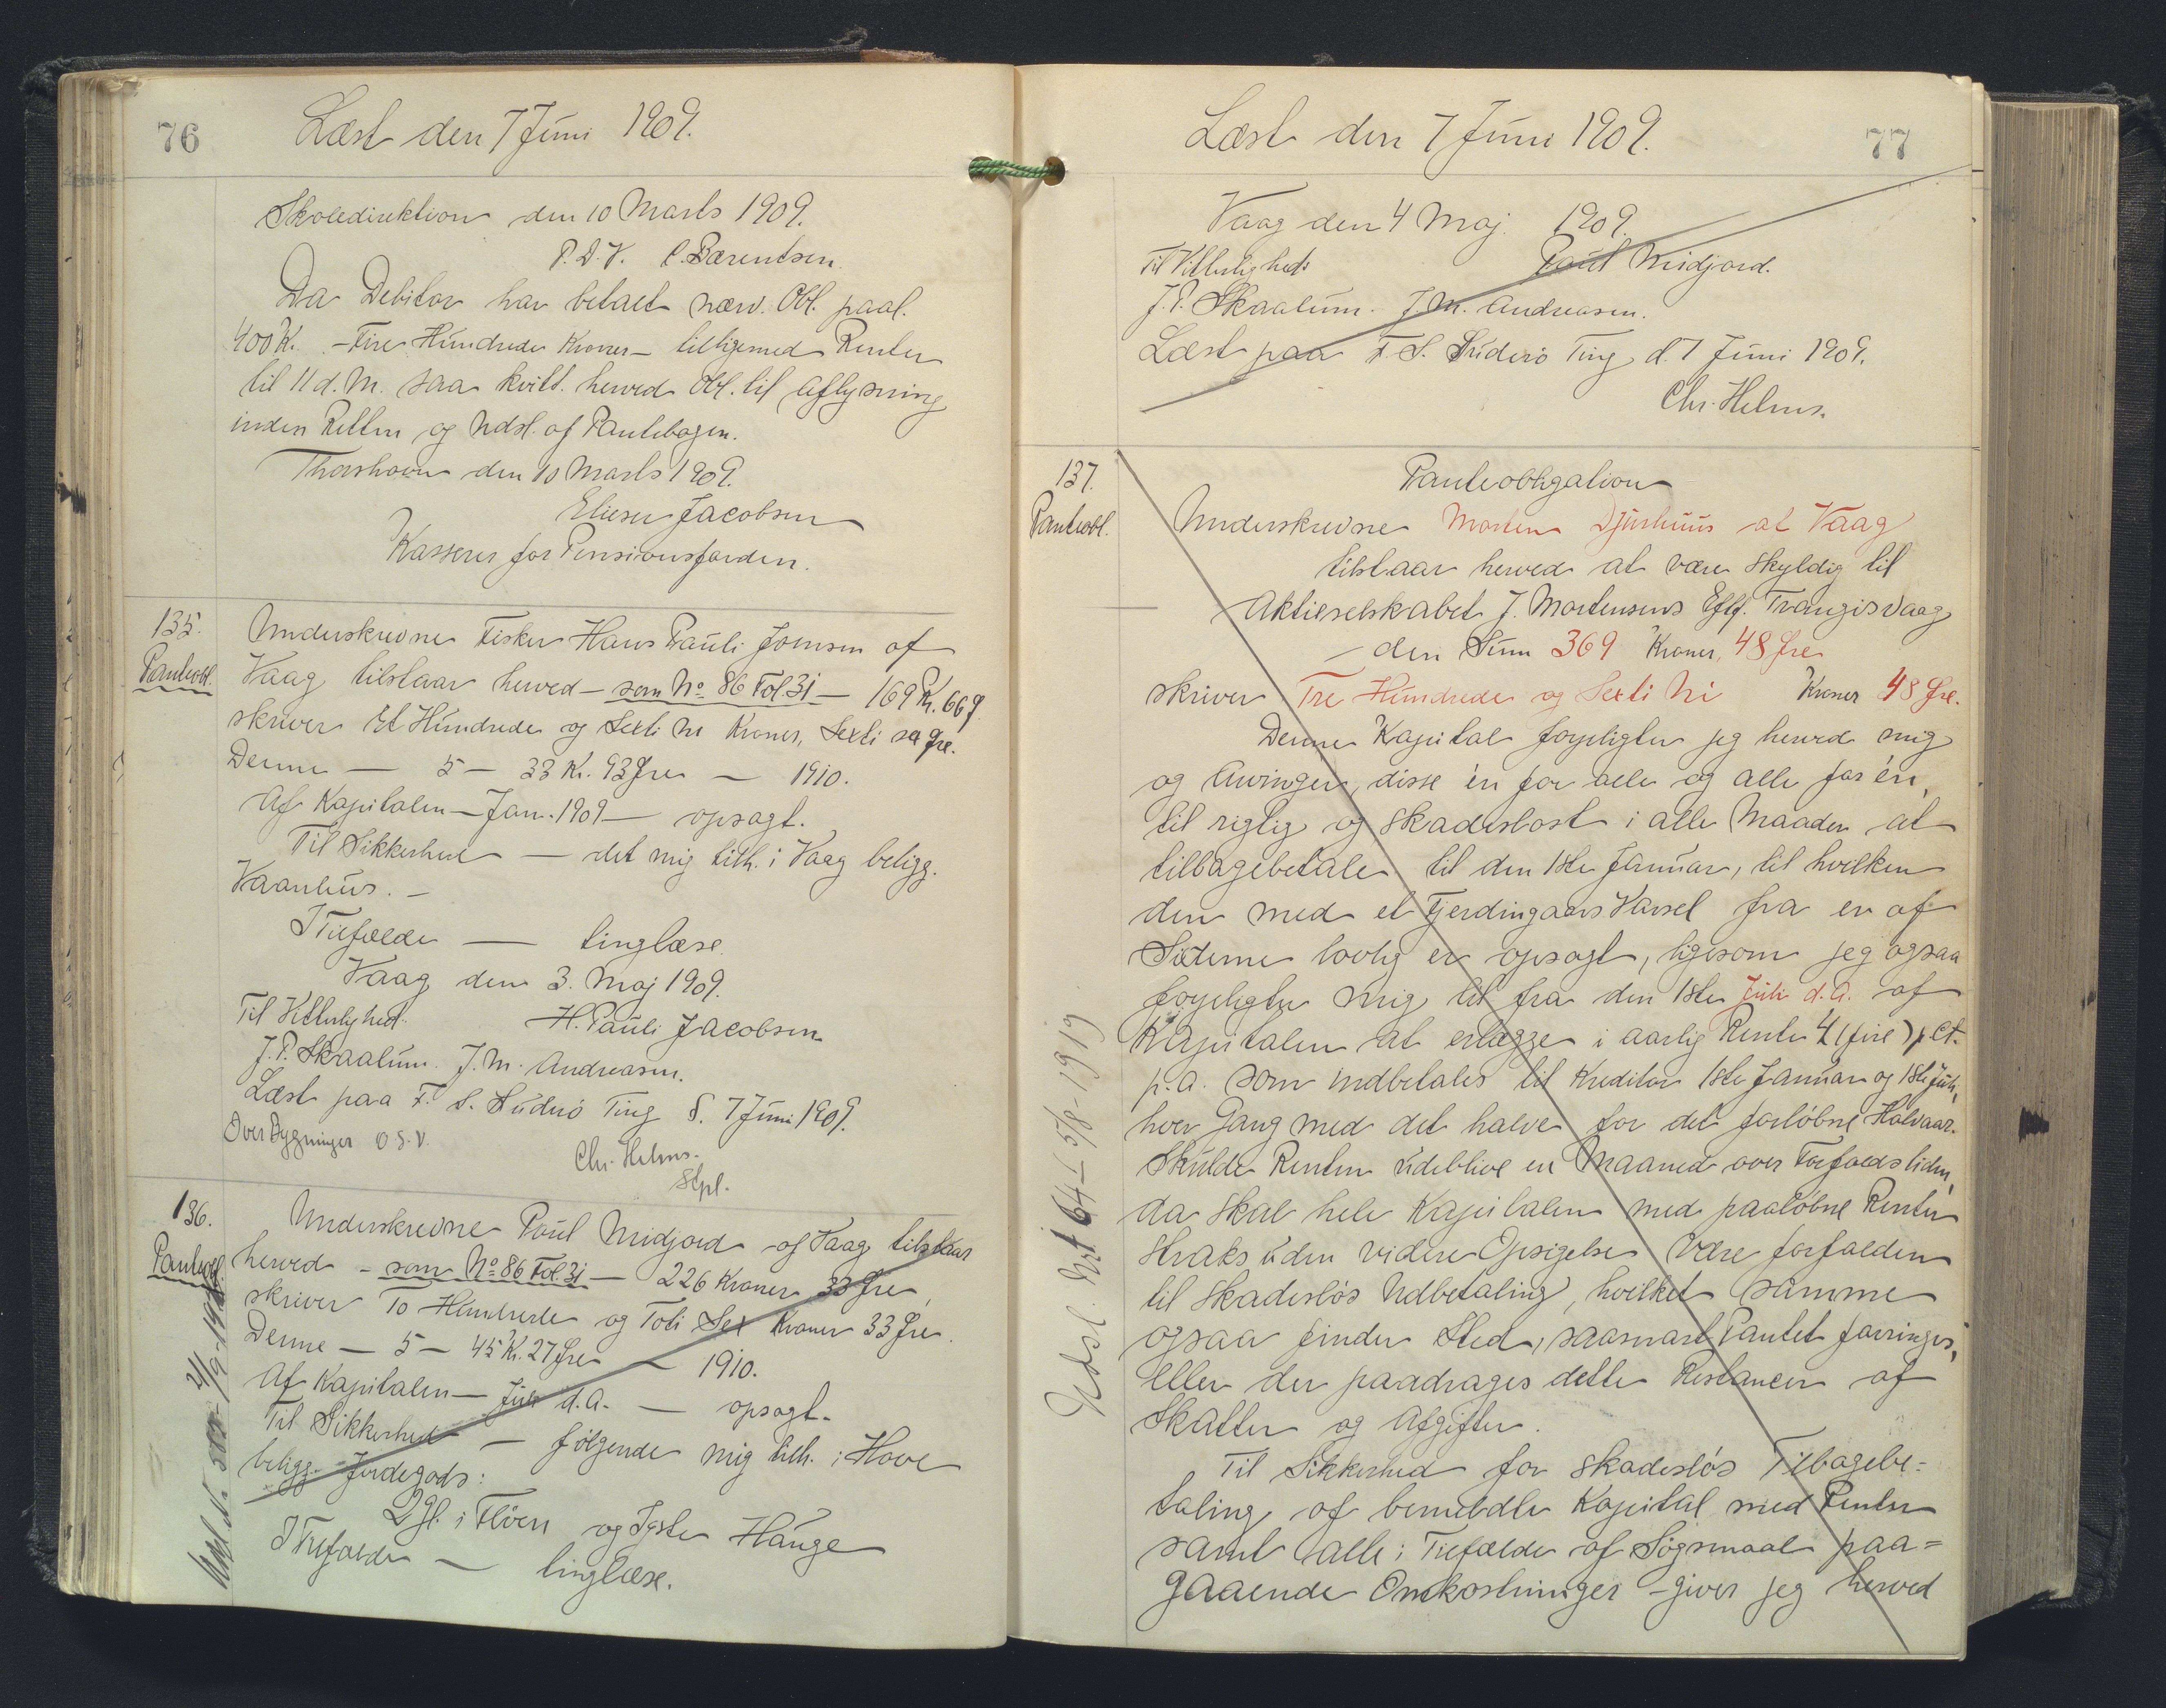 76
Læst den 7 Juni 1909.
Skoledirektion den 10 Marts 1909.
P. D. V. C. Bærentsen.
Da Debitor har betalt nærv. Obl. paal.
400 Kr. - Fire Hundrede Kroner - tilligemed Renter
til 11 d. M. saa kvitt. herved Obl. til Aflysning
inden Retten og Udsl. af Pantebogen.
Thorshavn den 10 Marts 1909.
Elieser Jacobsen
Kasserer for Pensionsfonden.
135.
Panteobl.
Underskrevne Fisker Hans Pauli Joensen af
Vaag tilstaar herved - som No 86 Fol 31 - 169 Kr. 66 Ø.
skriver Et Hundrede og Sexti Ni Kroner, Sexti sex Øre.
Denne - 5 - 33 Kr. 93 Øre - 1910.
Af Kapitalen - Jan. 1909 - opsagt.
Til Sikkerhed - det mig tilh. i Vaag beligg.
Vaanhus. -
I Tilfælde - tinglæse.
Vaag den 3. Maj 1909.
Til Vitterlighed. H. Pauli Jacobsen
J. P. Skaalum. J. M. Andreasen.
Læst paa F. S. Suderö Ting d. 7 Juni 1909.
Over Bygninger O. S. V.
Chr. Helms.
Stpl.
136.
Panteobl.
Underskrevne Poul Midjord af Vaag tilstaar
herved - som No 86 Fol. 31 - 226 Kroner 33 Øre,
skriver To Hundrede og Toti Sex Kroner 33 Øre.
Denne - 5 - 45 Kr. 27 Øre - 1910.
Af Kapitalen - Juli d. A. - opsagt.
Til Sikkerhed - følgende mig tilh. i Hove
beligg. Jordegods:
2 Gl. i Flöen og Igste Hauge
I Tilfælde - tinglæse.
77
Læst den 7 Juni 1909.
Vaag den 4 Maj 1909.
Til Vitterlighed: Poul Midjord.
J. P. Skaalum. J. M. Andreasen.
Læst paa F. S. Suderö Ting d. 7 Juni 1909.
Chr. Helms.
137.
Panteobl.
Udsl. Nr. 64 - 5/8 - 1919
Panteobligation
Underskrevne Morten Djurhuus af Vaag
tilstaar herved at være skyldig til
Aktieselskabet J. Mortensens Eftf. Trangisvaag
- den Sum 369 Kroner, 48 Øre
skriver Tre Hundrede og Sexti Ni Kroner 48 Øre.
Denne Kapital forpligter jeg herved mig
og Arvinger, disse én for alle og alle for én,
til rigtig og skadeslöst i alle Maader at
tilbagebetale til den 1ste Januar, til hvilken
den med et Fjerdingaars Varsel fra en af
Siderne lovlig er opsagt, ligesom jeg ogsaa
forpligter mig til fra den 1ste Juli d. A. af
Kapitalen at erlægge i aarlig Rente 4 (fire) p Ct.
p. a. som indbetales til Kreditor 1ste Januar og 1ste Juli,
hver Gang med det halve for det forlöbne Halvaar.
Skulde Renten udeblive en Maaned over Forfaldstiden,
da skal hele Kapitalen med paalöbne Renter
straks uden videre Opsigelse være forfalden
til skadeslös Udbetaling, hvilket samme
ogsaa finder Sted, saasnart Pantet forringes,
eller der paadrages dette Restancer af
Skatter og Afgifter.
Til Sikkerhed for skadeslös Tilbagebe=
taling af bemeldte Kapital med Renter
samt alle i Tilfælde af Sögsmaal paa=
gaaende Omkostninger - giver jeg herved